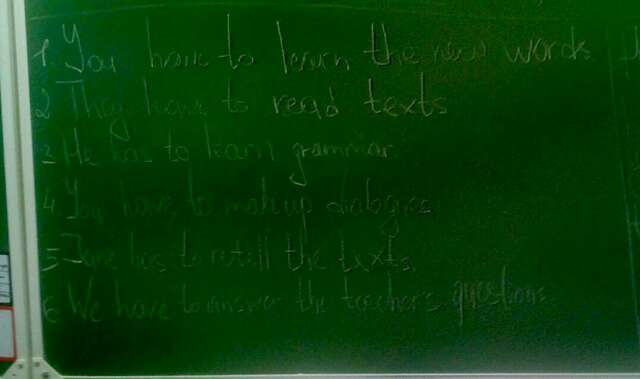 1. You have to learn the new words
2 They have to read texts
3 He has to learn grammar.
4. You have to make up dialogies
5 Jane has to retell the texts.
6 We have to answer the teacher's questions.